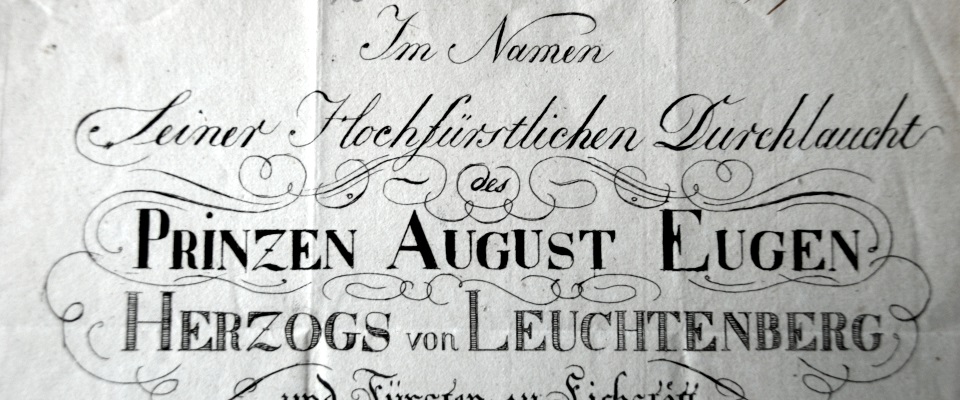 Im Namen
Seiner Hochfürstlichen Durchlaucht
des
PRINZEN AUGUST EUGEN
HERZOGS von LEUCHTENBERG
und Fürsten zu Eichstätt